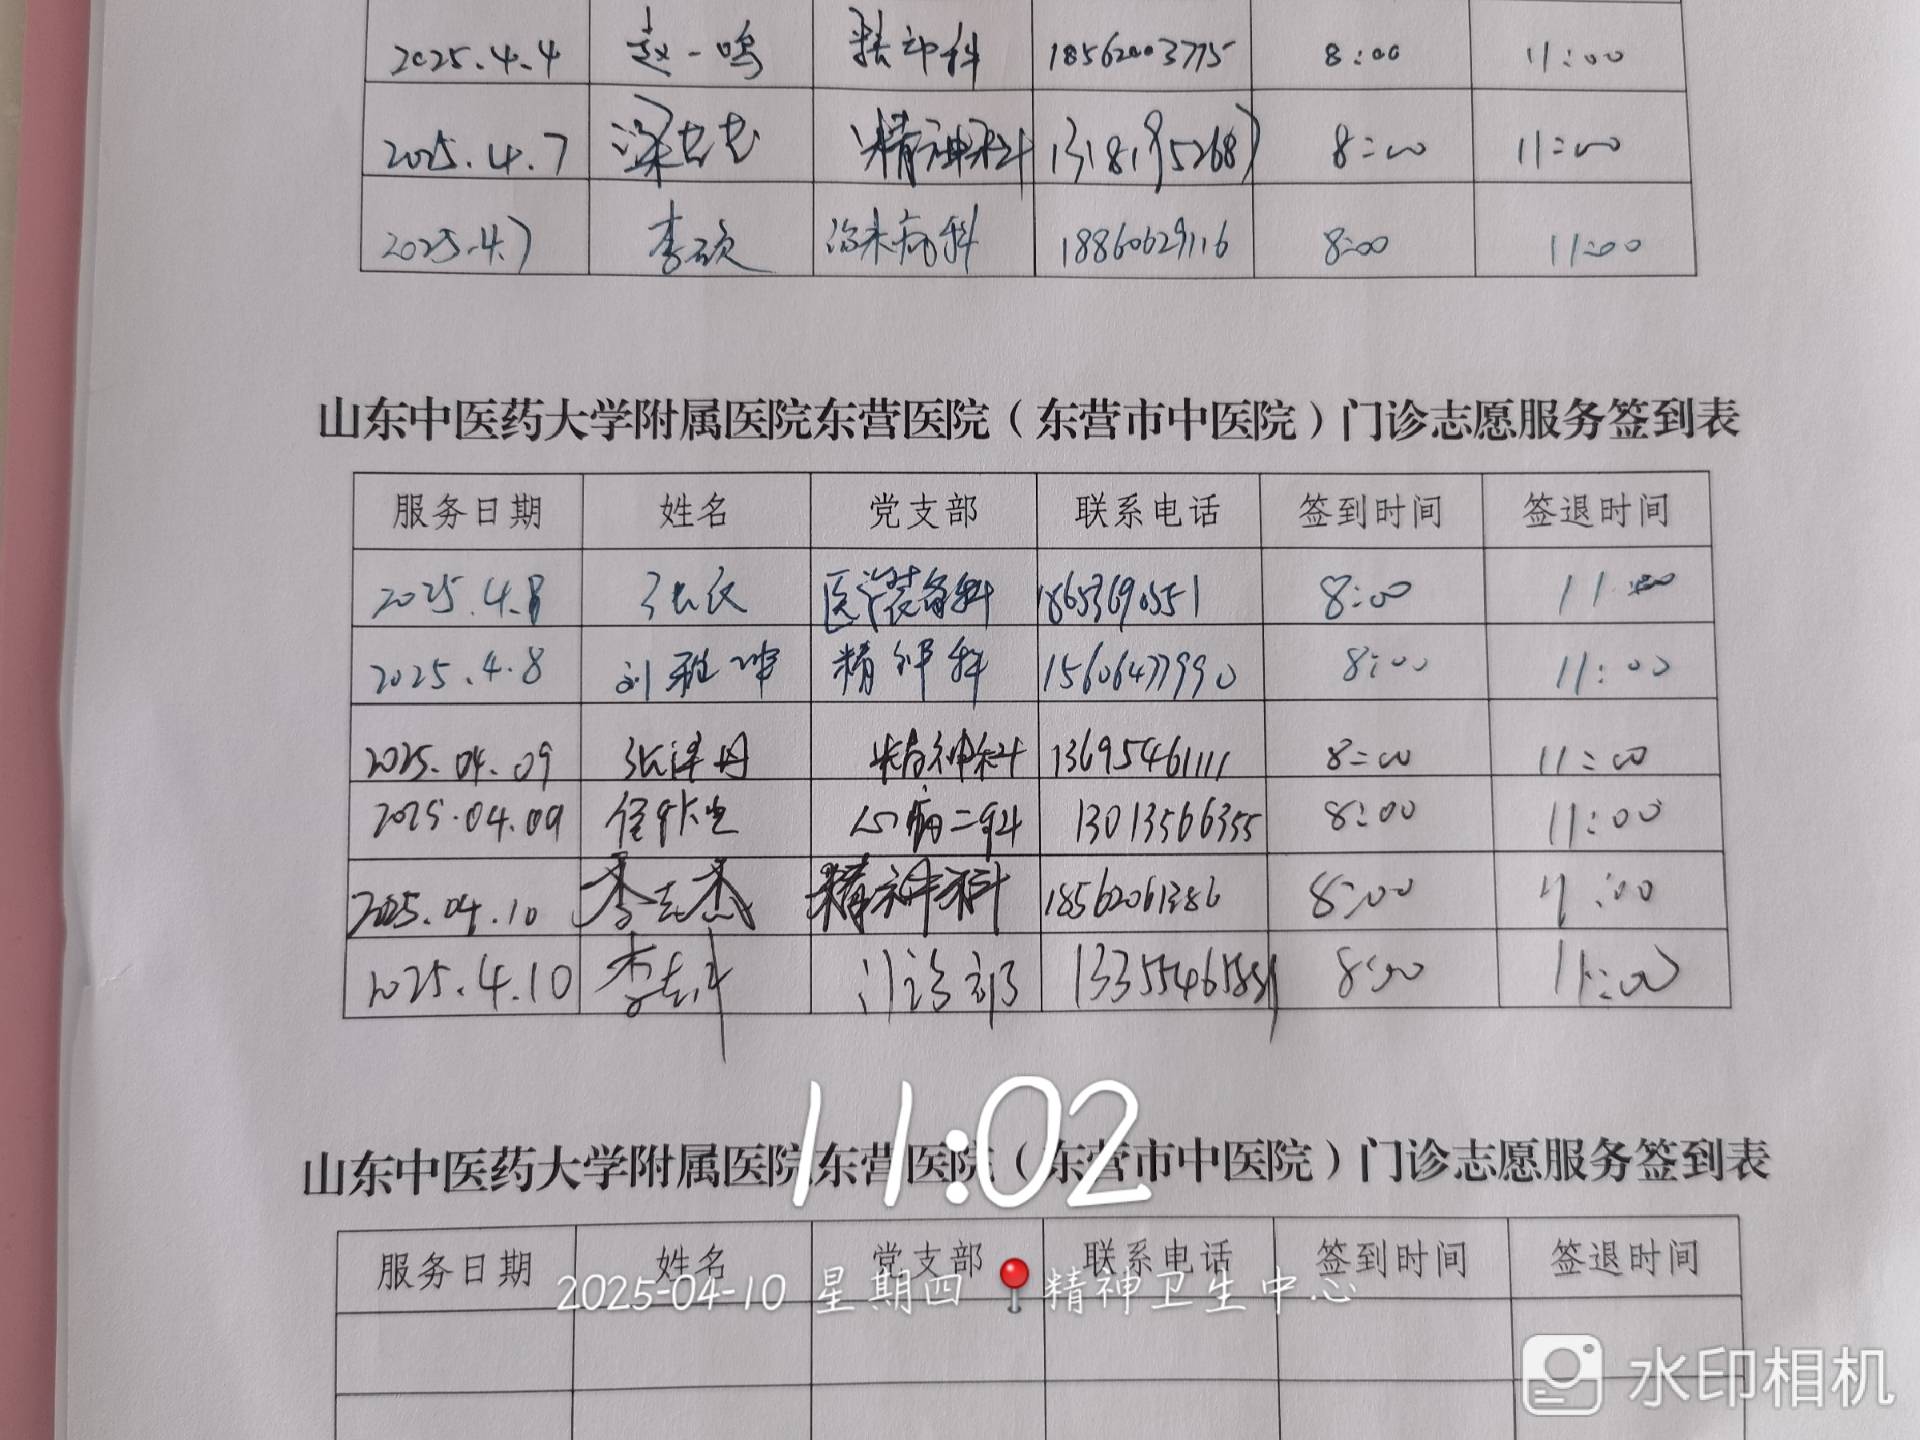 2025.4.4 赵一鸣 精神科 18562003775 8:00 11:00
2025.4.7 梁志志 精神科 8:00 11:00
2025.4.7 李硕 治未病科 18860629116 8:00 11:00
山东中医药大学附属医院东营医院（东营市中医院）门诊志愿服务签到表
服务日期 姓名 党支部 联系电话 签到时间 签退时间
2025.4.8 医疗装备科 18653690551 8:00 11:00
2025.4.8 刘雅坤 精神科 15606477990 8:00 11:00
2025.04.09 张泽丹 精神科 13695461111 8:00 11:00
2025.04.09 心病二科 13013566355 8:00 11:00
2025.04.10 李志杰 精神科 18562061386 8:00 11:00
2025.4.10 门诊部 8:00 11:00
11:02
山东中医药大学附属医院东营医院（东营市中医院）门诊志愿服务签到表
服务日期 姓名 党支部 联系电话 签到时间 签退时间
2025-04-10 星期四 精神卫生中心
水印相机